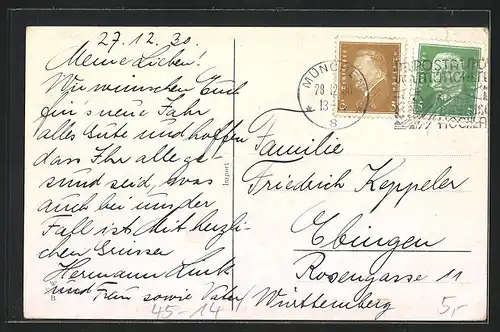 27.12.30.
Meine Lieben!
Wir wünschen Euch
für's neue Jahr
alles Gute und hoffen
dass Ihr alle ge-
sund seid, was
auch bei uns der
Fall ist. Mit herzli-
chen Grüssen
Hermann Link
und Frau sowie Vater
45-14
Import
W B
MÜNCHEN
28 12
13
8
Familie
Friedrich Keppeler
Ebingen
Rosengasse 11
Württemberg
5,-